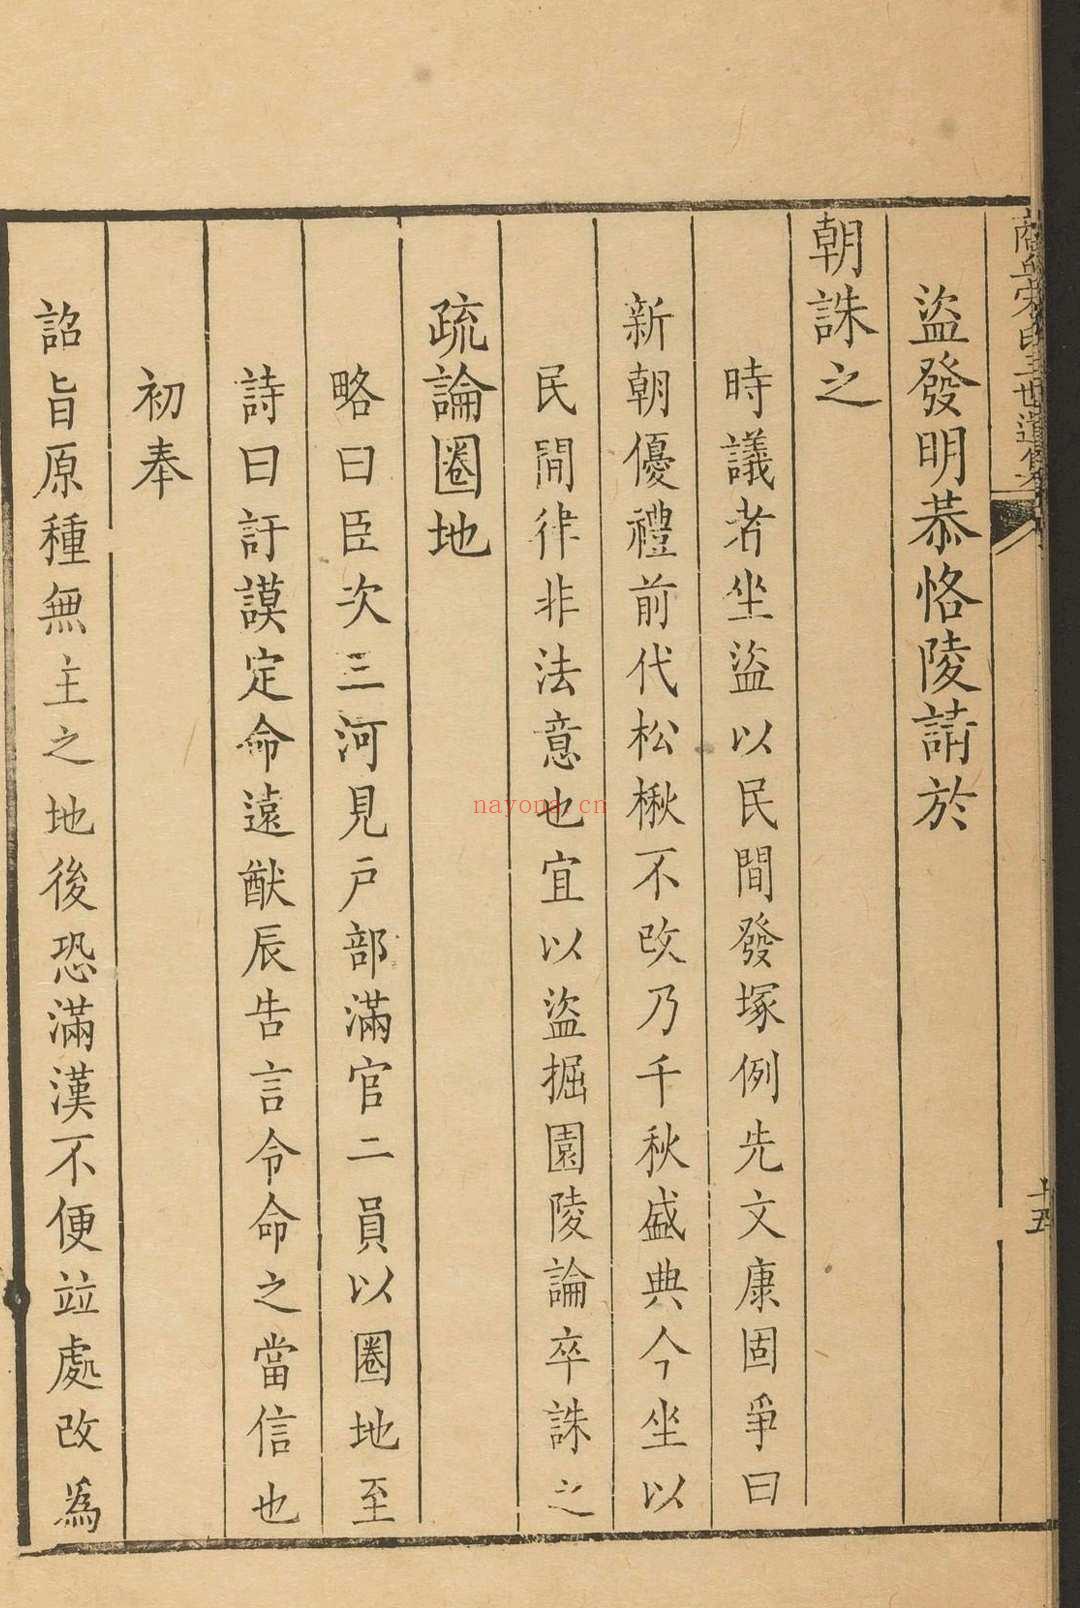 盜發明恭恪陵請於
朝誅之
時議者坐盜以民間發塚例先文康固爭曰
新朝優禮前代松楸不改乃千秋盛典今坐以
民間律非法意也宜以盜掘園陵論卒誅之
疏論圈地
略曰臣次三河見戶部滿官二員以圈地至
詩曰訏謨定命遠猷辰告言令命之當信也
初奉
詔旨原種無主之地後恐滿漢不便竝處改為
十五
nayona.cn